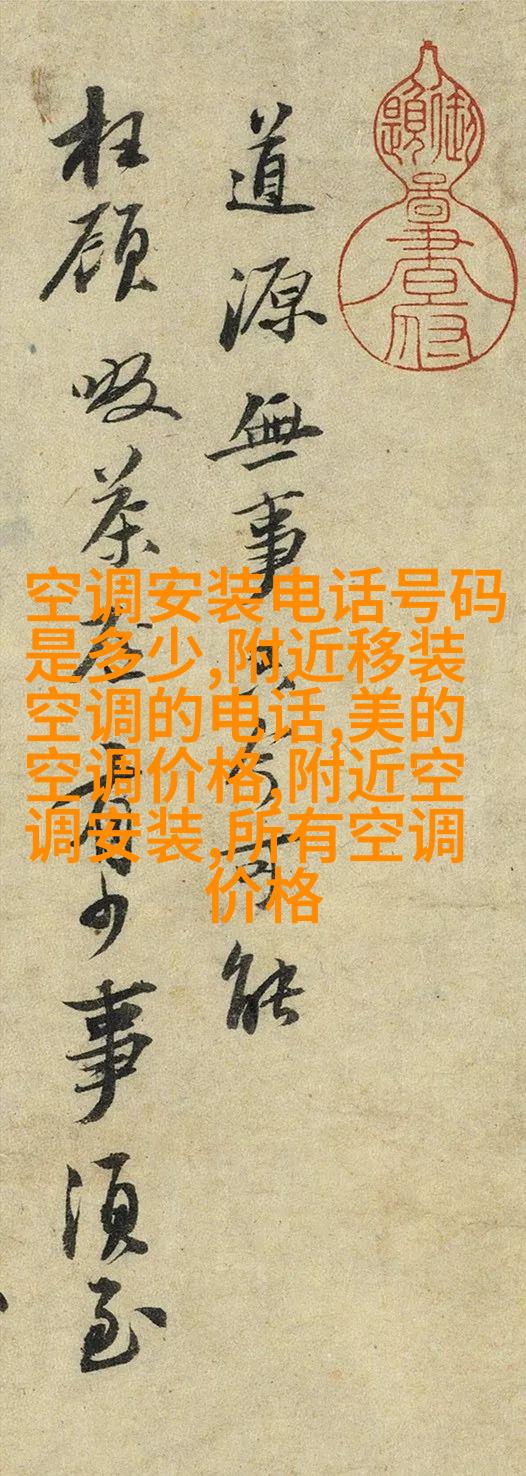 道源無事只今可能
枉顧啜茶否有少事須至
空调安装电话号码
是多少,附近移装
空调的电话,美的
空调价格,附近空
调安装,所有空调
价格